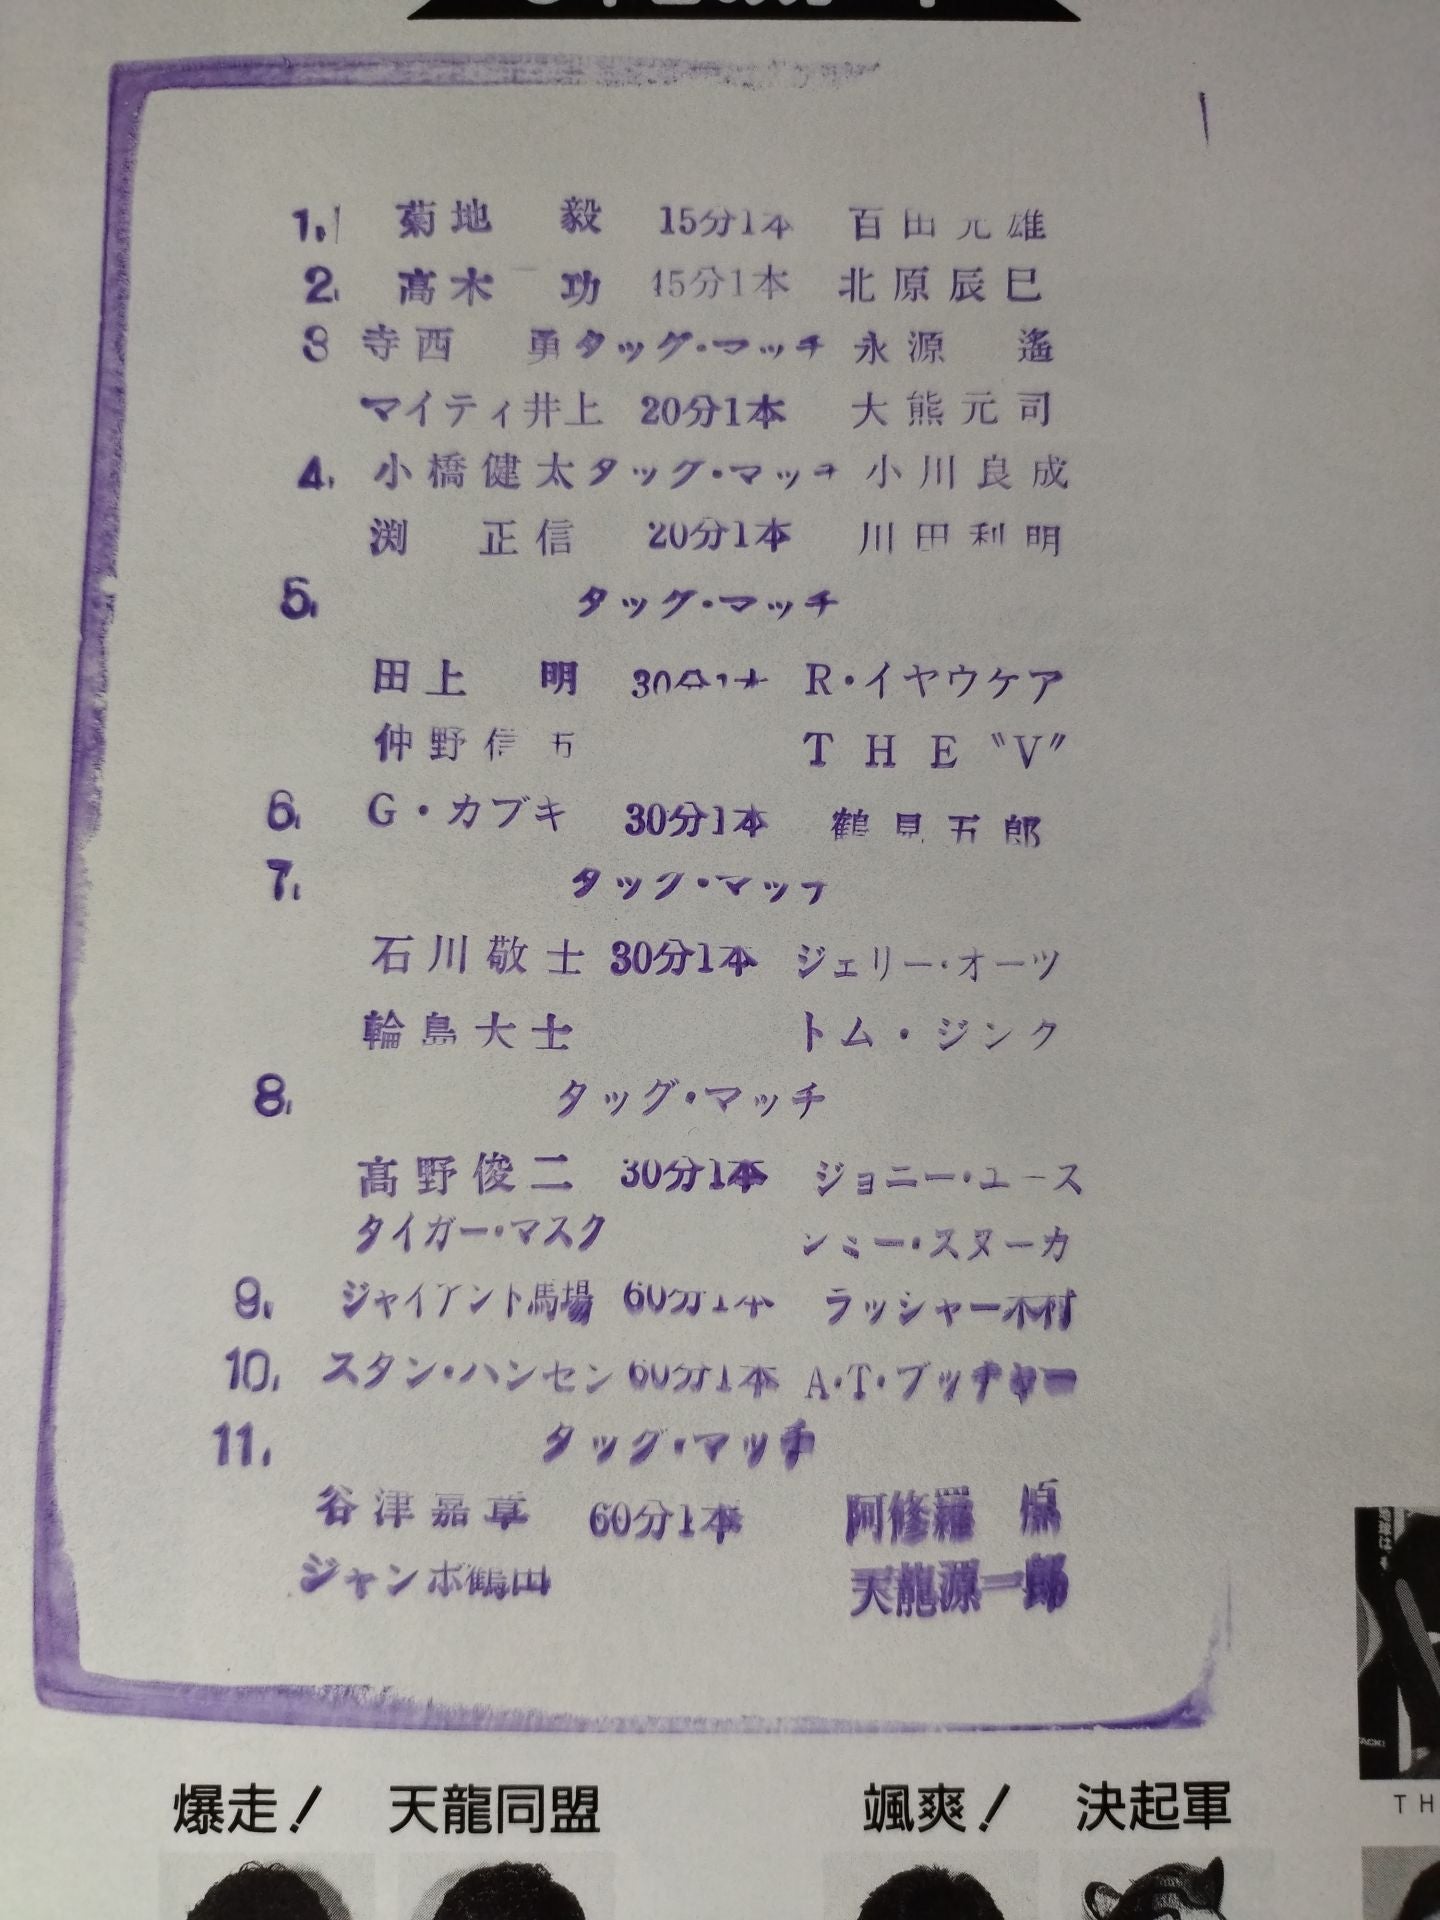 1. 菊地 毅 15分1本 百田光雄
2. 高木 功 15分1本 北原辰巳
3 寺西 勇 タッグ・マッチ 永源 遙
マイティ井上 20分1本 大熊元司
4. 小橋健太 タッグ・マッチ 小川良成
渕 正信 20分1本 川田利明
5. タッグ・マッチ
田上 明 30分1本 R・イヤウケア
仲野信市 THE〝V〞
6. G・カブキ 30分1本 鶴見五郎
7. タッグ・マッチ
石川敬士 30分1本 ジェリー・オーツ
輪島大士 トム・ジンク
8. タッグ・マッチ
高野俊二 30分1本 ジョニー・エース
タイガー・マスク ジミー・スヌーカ
9. ジャイアント馬場 60分1本 ラッシャー木村
10. スタン・ハンセン 60分1本 A・T・ブッチャー
11. タッグ・マッチ
谷津嘉章 60分1本 阿修羅 原
ジャンボ鶴田 天龍源一郎
爆走! 天龍同盟 颯爽! 決起軍
TH